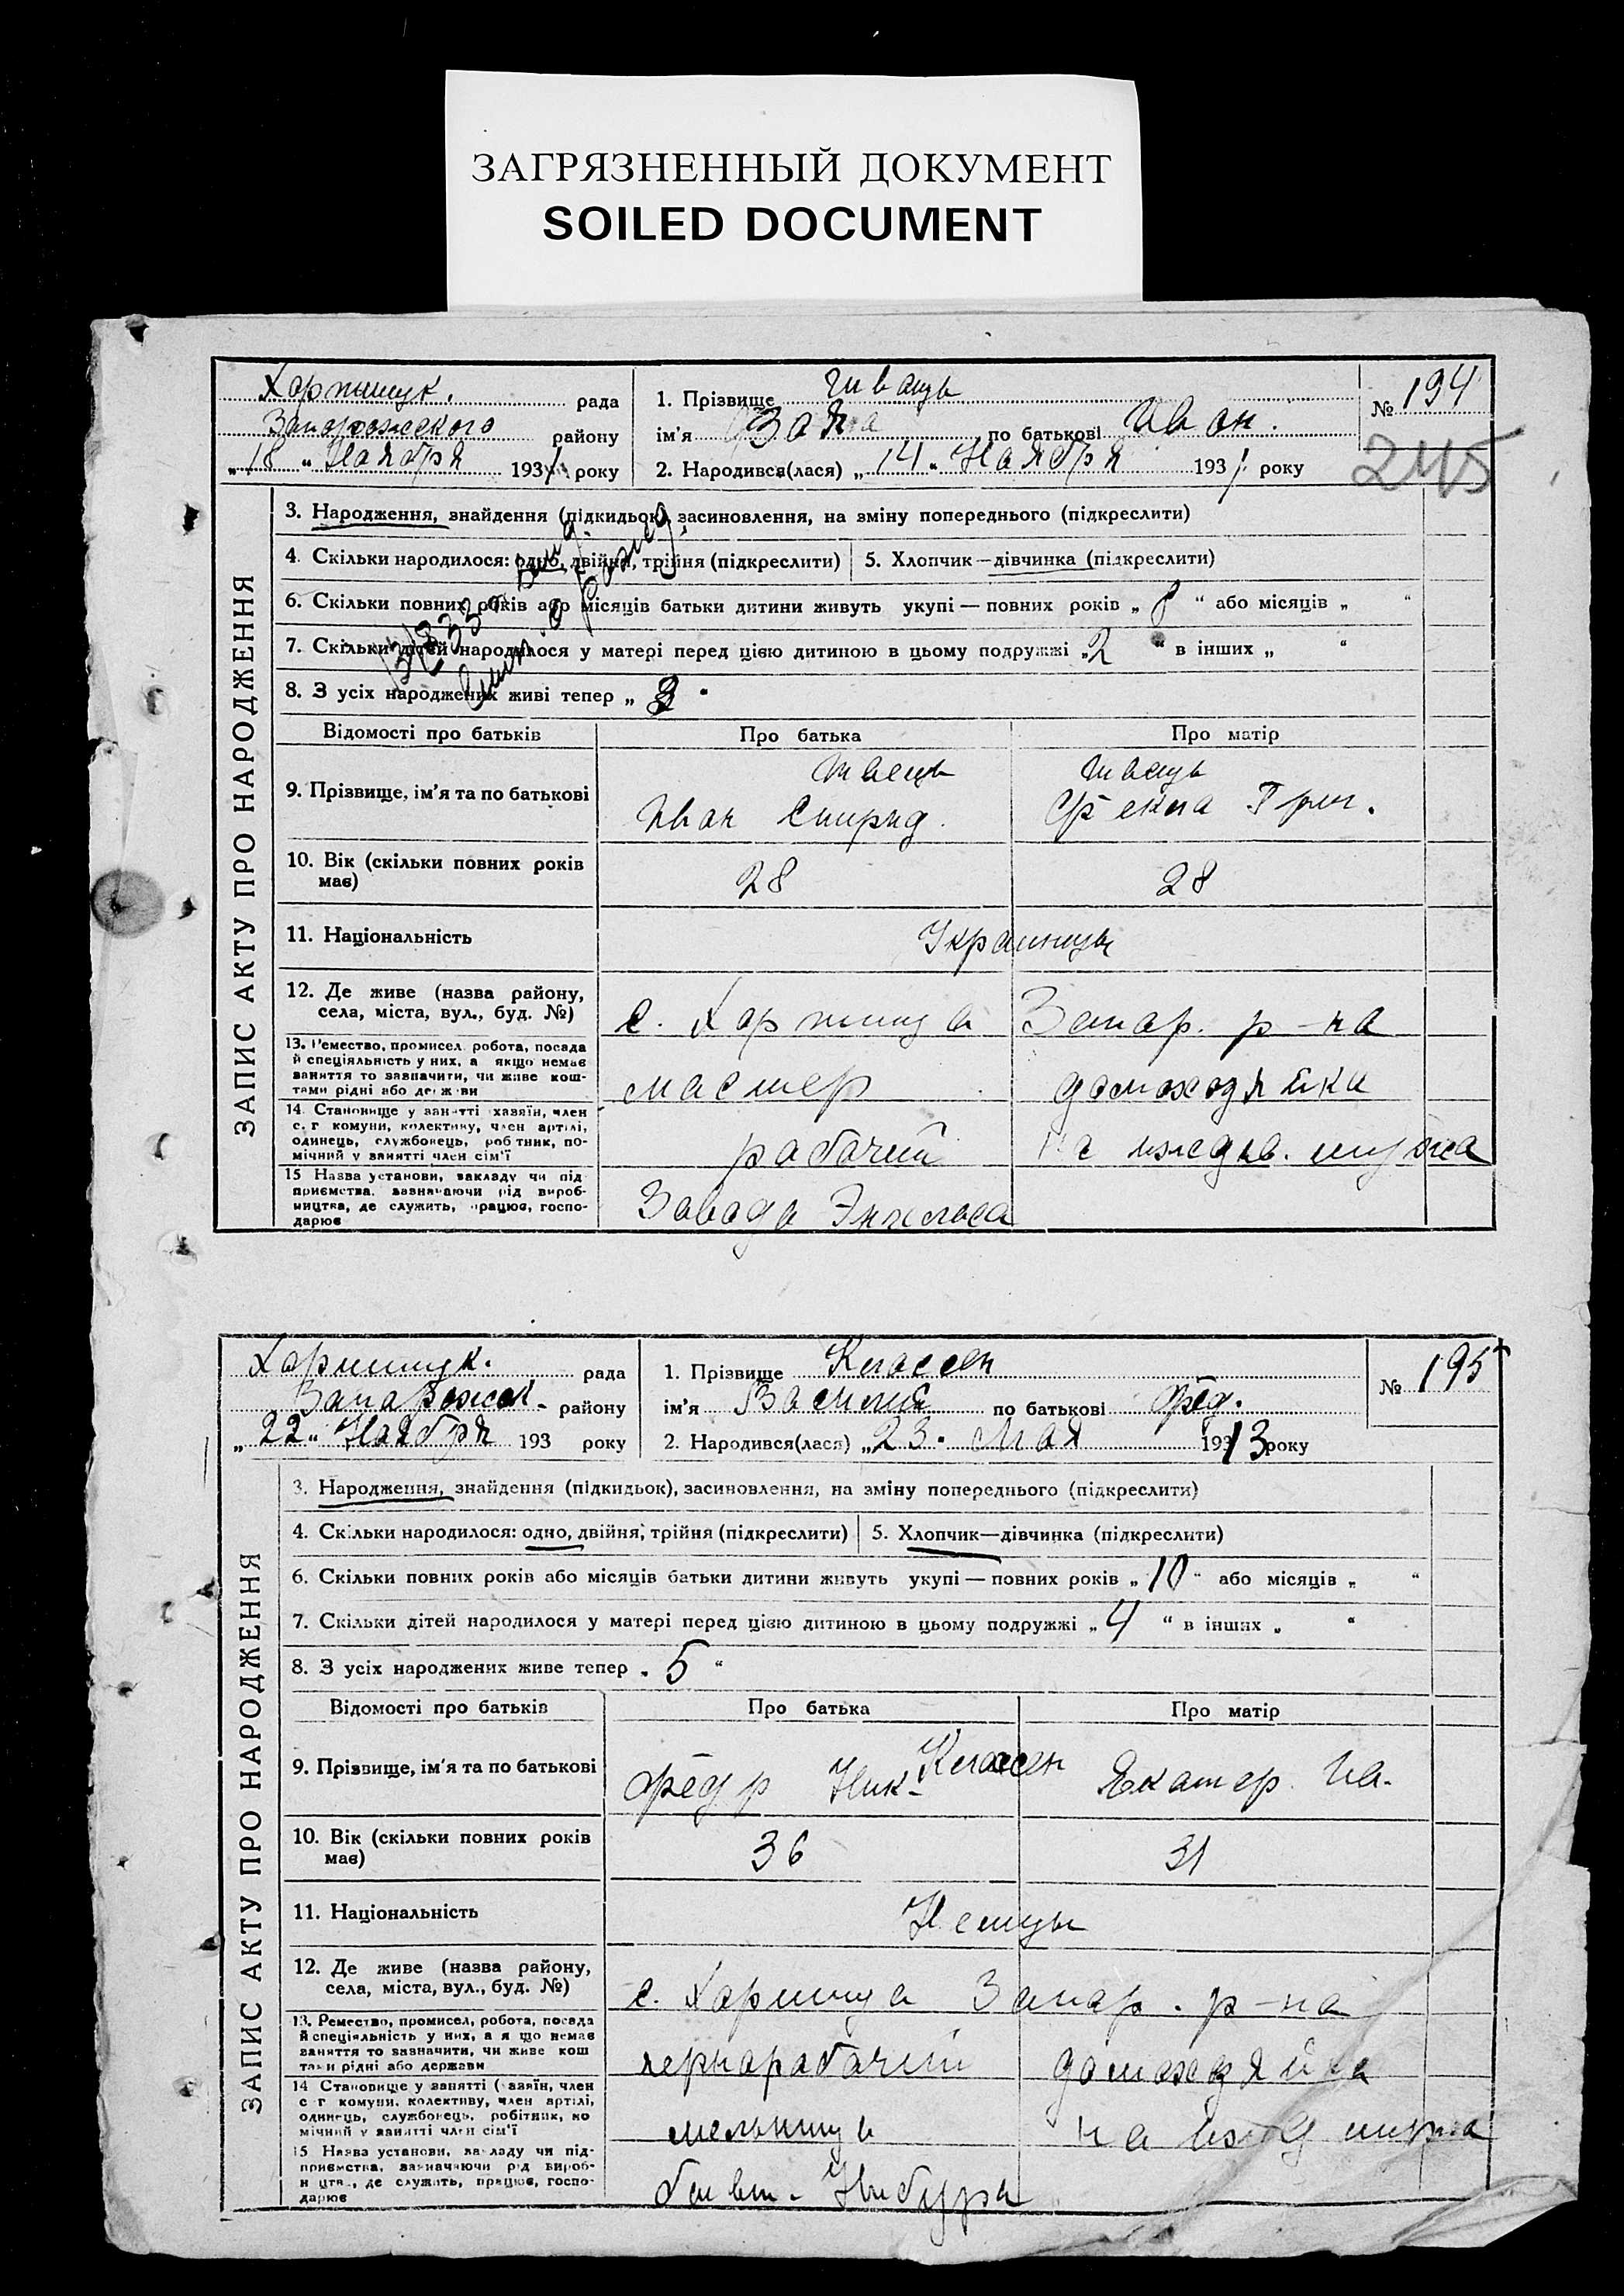 ЗАГРЯЗНЕННЫЙ ДОКУМЕНТ
SOILED DOCUMENT
ЗАПИС АКТУ ПРО НАРОДЖЕННЯ
Хортицк. рада
Запорожского района району
„18“ Ноября 1931 року
1. Прізвище Швець
ім'я Зоя по батькові Иван.
2. Народився(лася) „14“ Ноября 1931 року
№ 194
245
3. Народження, знайдення (підкидьок), засиновлення, на зміну попереднього (підкреслити)
4. Скільки народилося: одно, двійня, трійня (підкреслити) 5. Хлопчик—дівчинка (підкреслити)
6. Скільки повних років або місяців батьки дитини живуть укупі — повних років „8“ або місяців „ “
7. Скільки дітей народилося у матері перед цією дитиною в цьому подружжі „2“ в інших „ “
8. З усіх народжених живі тепер „3“
Відомості про батьків Про батька Про матір
9. Прізвище, ім'я та по батькові
Швець Швець
Иван Спирид. Фекла Григ.
10. Вік (скільки повних років має) 28 28
11. Національність Украинцы
12. Де живе (назва району, села, міста, вул., буд. №) с. Хортица Запор. р-на
13. Ремество, промисел, робота, посада й спеціяльність у них, а якщо немає заняття то зазначити, чи живе коштами рідні або держави
мастер домохозяйка
14. Становище у занятті (хазяїн, член с. г комуни, колективу, член артілі, одинець, службовець, робітник, помічний у занятті член сім'ї
рабочий на иждив. мужа
15 Назва установи, закладу чи підприємства, зазначаючи рід виробництва, де служить, працює, господарює
Завода Энгельса
ЗАПИС АКТУ ПРО НАРОДЖЕННЯ
Хортицк. рада
Запорожск. району
„22“ Ноября 193 року
1. Прізвище Классен
ім'я Василий по батькові Фёд.
2. Народився(лася) „23“ Мая 1913 року
№ 195
3. Народження, знайдення (підкидьок), засиновлення, на зміну попереднього (підкреслити)
4. Скільки народилося: одно, двійня, трійня (підкреслити) 5. Хлопчик—дівчинка (підкреслити)
6. Скільки повних років або місяців батьки дитини живуть укупі — повних років „10“ або місяців „ “
7. Скільки дітей народилося у матері перед цією дитиною в цьому подружжі „4“ в інших „ “
8. З усіх народжених живе тепер „5“
Відомості про батьків Про батька Про матір
9. Прізвище, ім'я та по батькові
Классен
Фёдр Ник. Екатер. Ив.
10. Вік (скільки повних років має) 36 31
11. Національність Немцы
12. Де живе (назва району, села, міста, вул., буд. №) с. Хортица Запор. р-на
13. Ремество, промисел, робота, посада й спеціяльність у них, а якщо немає заняття то зазначити, чи живе коштами рідні або держави
чернорабочий домохозяйка
14 Становище у занятті (хазяїн, член с г комуни, колективу, член артілі, одинець, службовець, робітник, помічний у занятті член сім'ї
мельницы на ижд мужа
15 Назва установи, закладу чи підприємства, зазначаючи рід виробництва, де служить, працює, господарює
бывш. Нибура